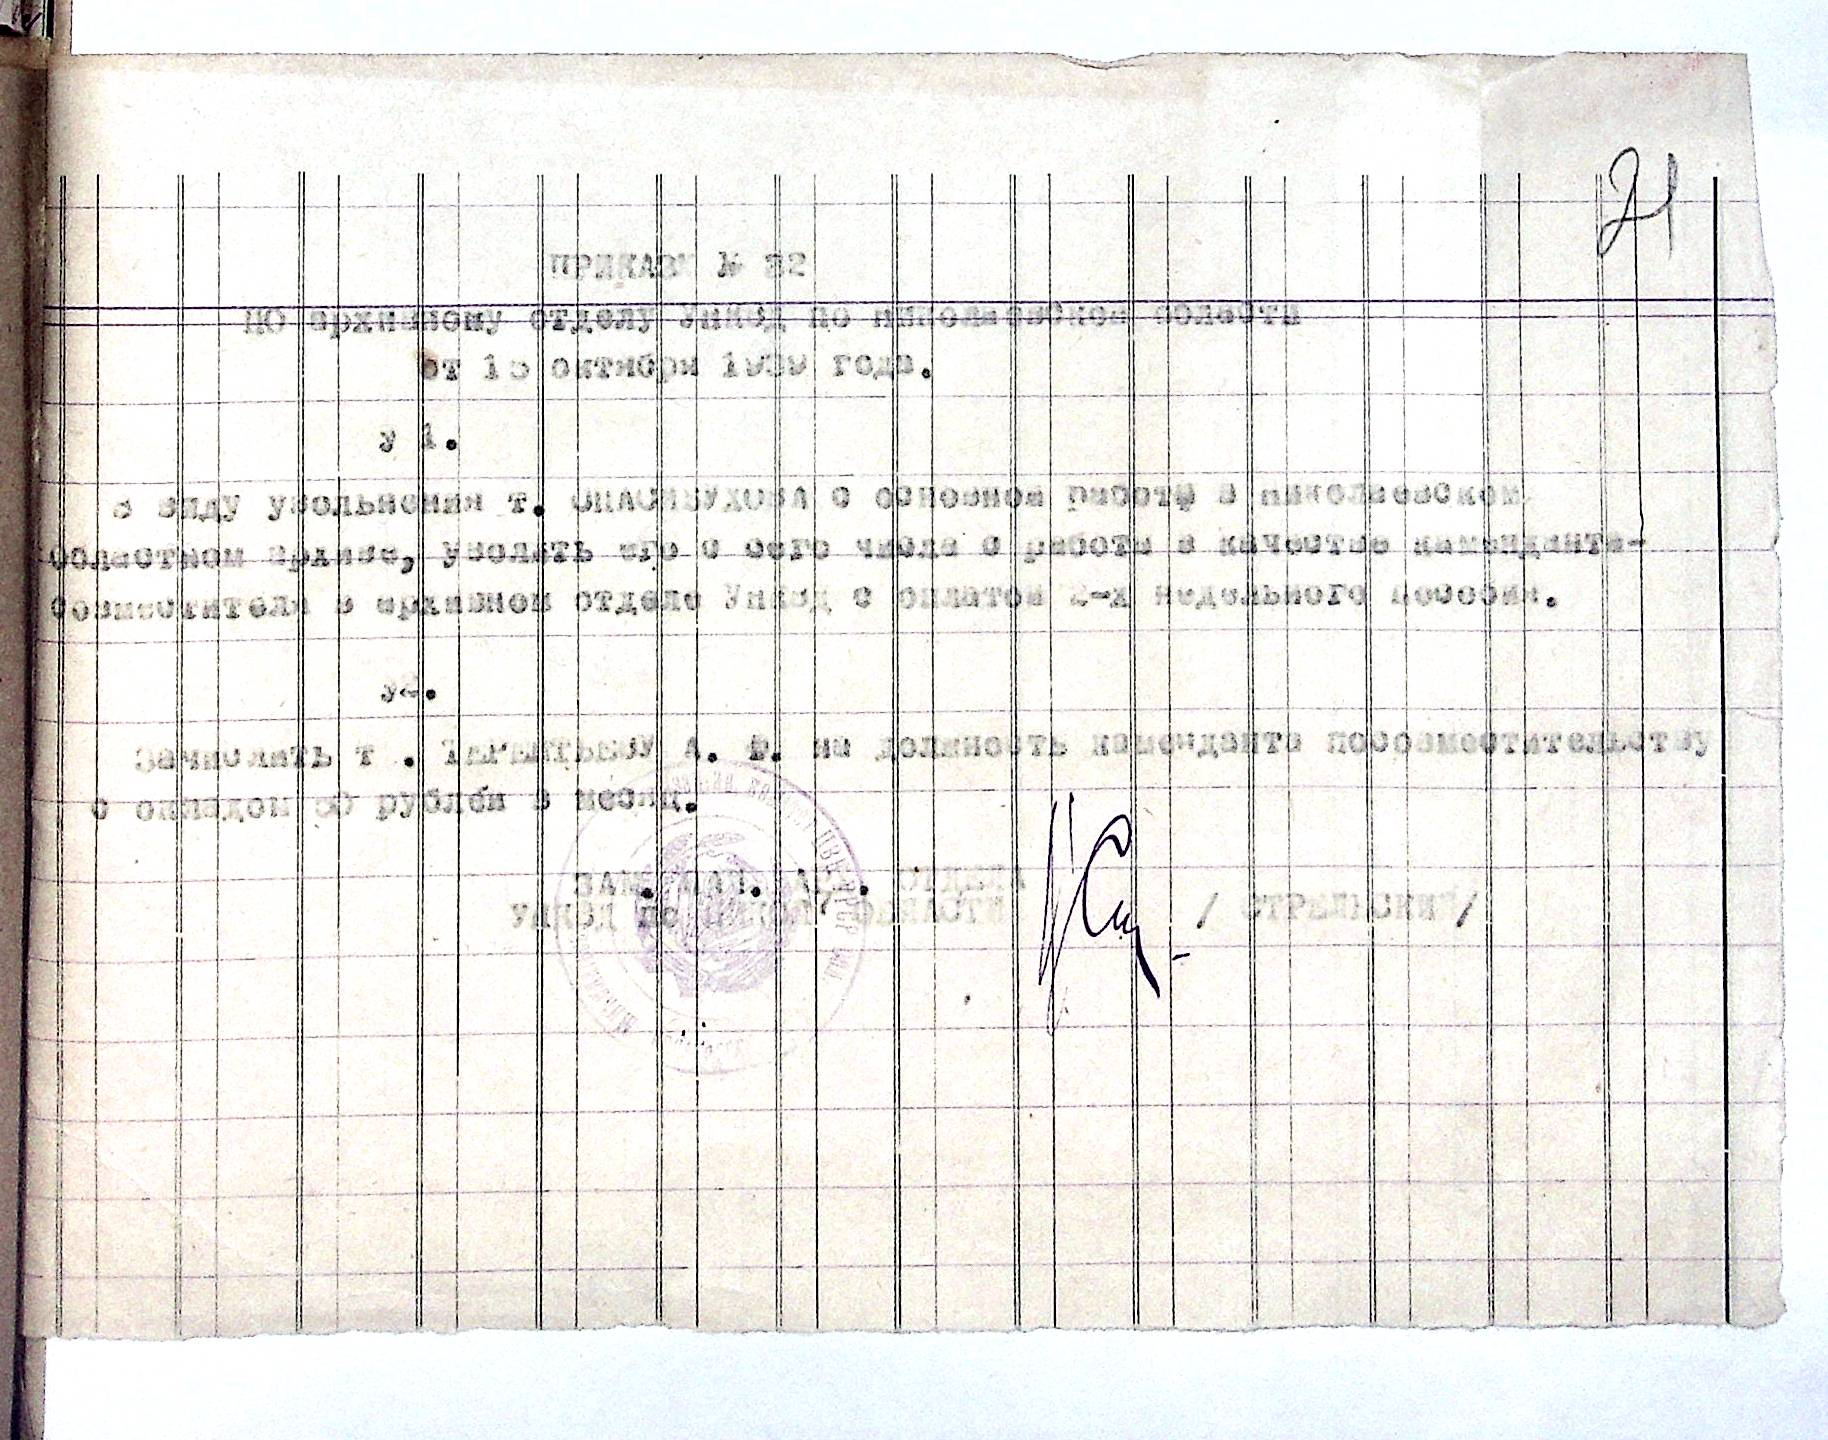 21
ПРИКАЗ № 32
ПО архивному отделу УНКВД по николаевской области
от 15 октября 1939 года.
§ 1.
в виду увольнения т. с основной работы в николаевском
областном архиве, уволить его с сего числа с работы в качестве каменданта-
совместителя в архивном отделе УНКВД с оплатой 2-х недельного пособия.
§2.
Зачислить т . А. Ф. на должность каменданта посовместительству
с окладом 50 рублей в месяц.
ЗАМ. НАЧ. АРХ. ОТДЕЛА
УНКВД по НИКОЛ. ОБЛАСТИ / /